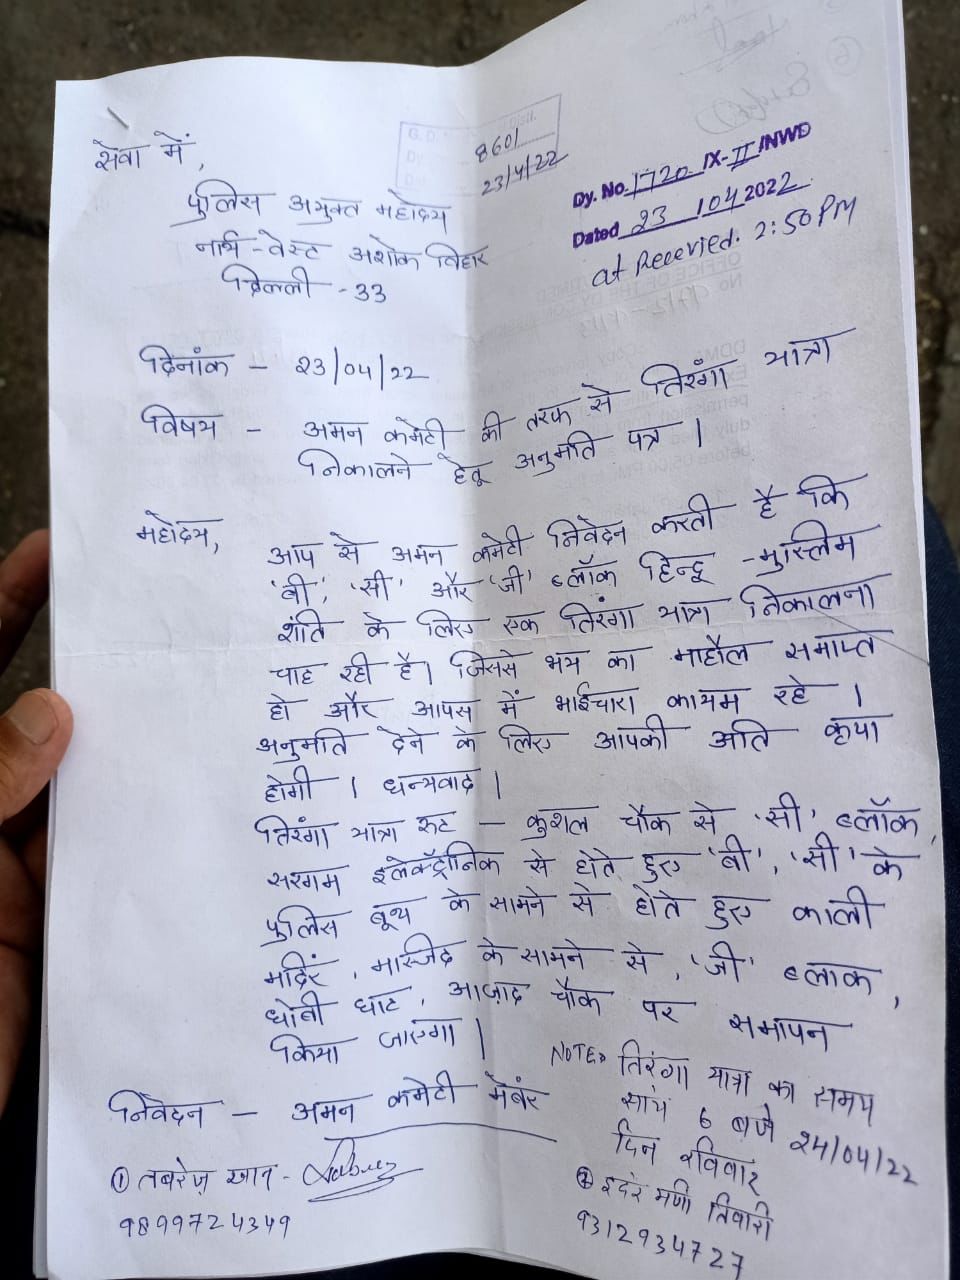 सेवा में,
8601
23/4/22
Dy. No. 1720 IX-II/NWD
Dated 23/04/2022
at Receevied. 2:50 PM
पुलिस अयुक्त महोदय
नार्थ-वेस्ट अशोक विहार
दिल्ली -33
दिनांक - 23/04/22
विषय - अमन कमेटी की तरफ से तिरंगा यात्रा
निकालने हेतू अनुमति पत्र ।
महोदय,
आप से अमन कमेटी निवेदन करती है कि
'बी', 'सी' और 'जी' ब्लॉक हिन्दू-मुस्लिम
शांति के लिए एक तिरंगा यात्रा निकालना
चाह रही है। जिससे भय का माहौल समाप्त
हो और आपस में भाईचारा कायम रहे ।
अनुमति देने के लिए आपकी अति कृपा
होगी । धन्यवाद ।
तिरंगा यात्रा रूट - कुशल चौक से 'सी' ब्लॉक,
सरगम इलेक्ट्रॉनिक से होते हुए 'बी', 'सी' के
पुलिस बूथ के सामने से होते हुए काली
मंदिर, मस्जिद के सामने से, 'जी' ब्लाक,
धोबी घाट, आज़ाद चौक पर समापन
किया जाएगा ।
NOTE:> तिरंगा यात्रा का समय
सांय 6 बजे 24/04/22
दिन रविवार
निवेदन - अमन कमेटी मेंबर
① तबरेज़ खान -
9899724349
② इंदर मणी तिवारी
9312934727